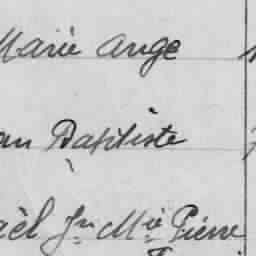 Marie Ange
an Baptiste
aèl Jn Mie Pierre